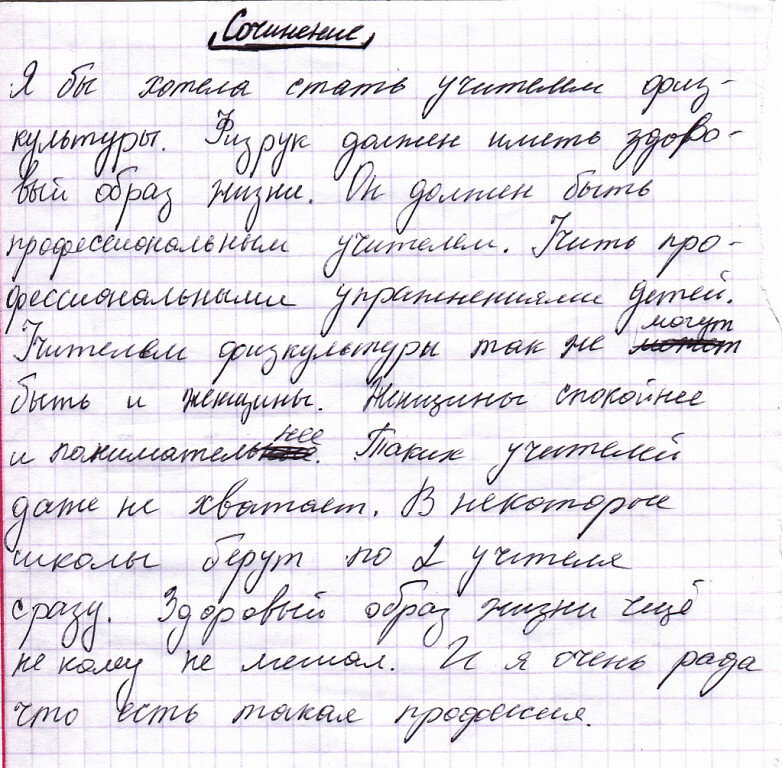 Сочинение
Я бы хотела стать учителем физ-
культуры. Физрук должен иметь здоро-
вый образ жизни. Он должен быть
профессиональным учителем. Учить про-
фессиональными упражнениями детей.
Учителем физкультуры так же могут
быть и женщины. Женщины спокойнее
и пониматель нее. Таких учителей
даже не хватает. В некоторые
школы берут по 2 учителя
сразу. Здоровый образ жизни ещё
не кому не мешал. И я очень рада
что есть такая професия.